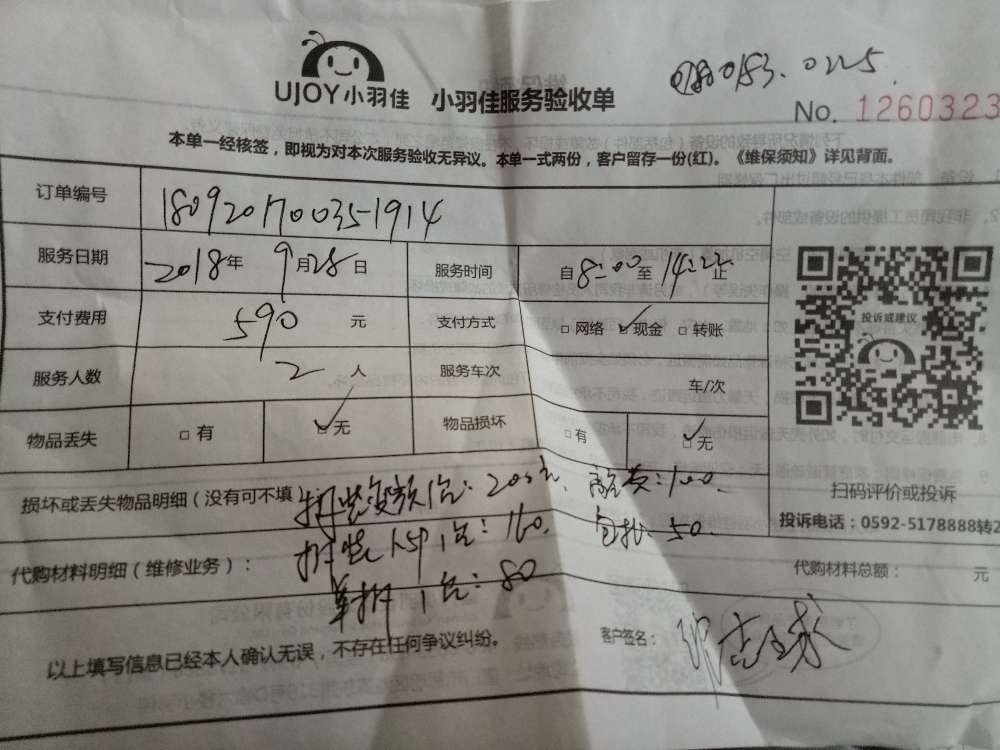 UJOY小羽佳 小羽佳服务验收单
No. 1260323
本单一经核签，即视为对本次服务验收无异议。本单一式两份，客户留存一份(红)。《维保须知》详见背面。
订单编号 180920170035-1914
服务日期 2018年9月28日 服务时间 自8:00至14:22止
支付费用 590 元 支付方式 □网络 ☑现金 □转账
投诉或建议
服务人数 2 人 服务车次 车/次
物品丢失 □有 ☑无 物品损坏 □有 ☑无
扫码评价或投诉
损坏或丢失物品明细（没有可不填 拆装变频1台：200元
投诉电话：0592-5178888转2
拆装1.5P1台：160. 包扎：50.
代购材料明细（维修业务）： 代购材料总额： 元
单拆1台：80
客户签名：
以上填写信息已经本人确认无误，不存在任何争议纠纷。